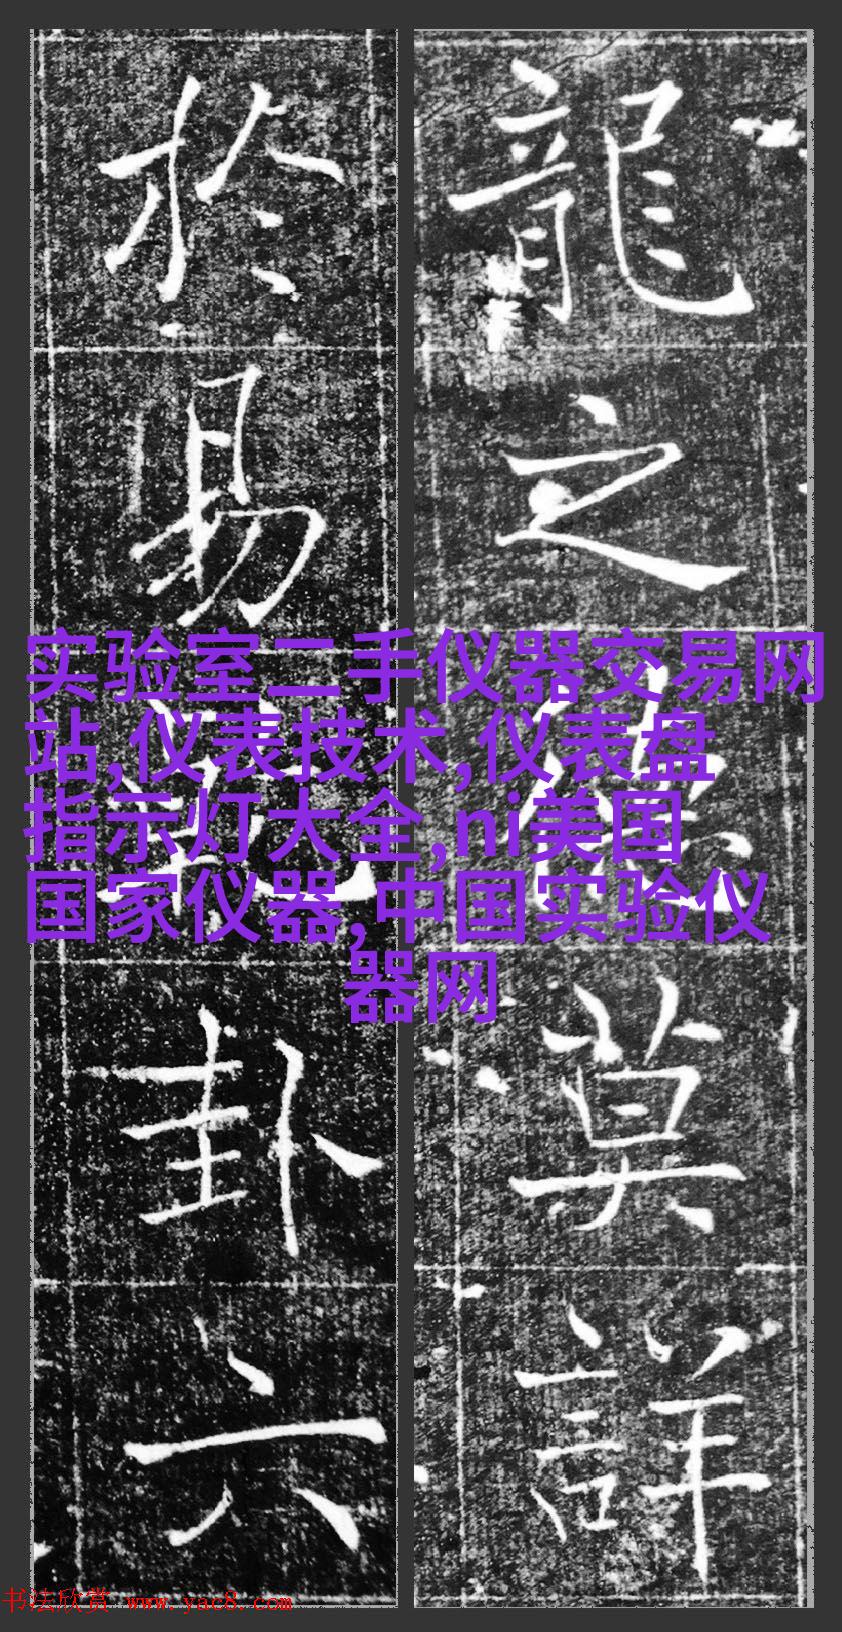 龍之德莫詳
於易乾卦六
实验室二手仪器交易网
站,仪表技术,仪表盘
指示灯大全,ni美国
国家仪器,中国实验仪
器网
书法欣赏 www.yac8.com